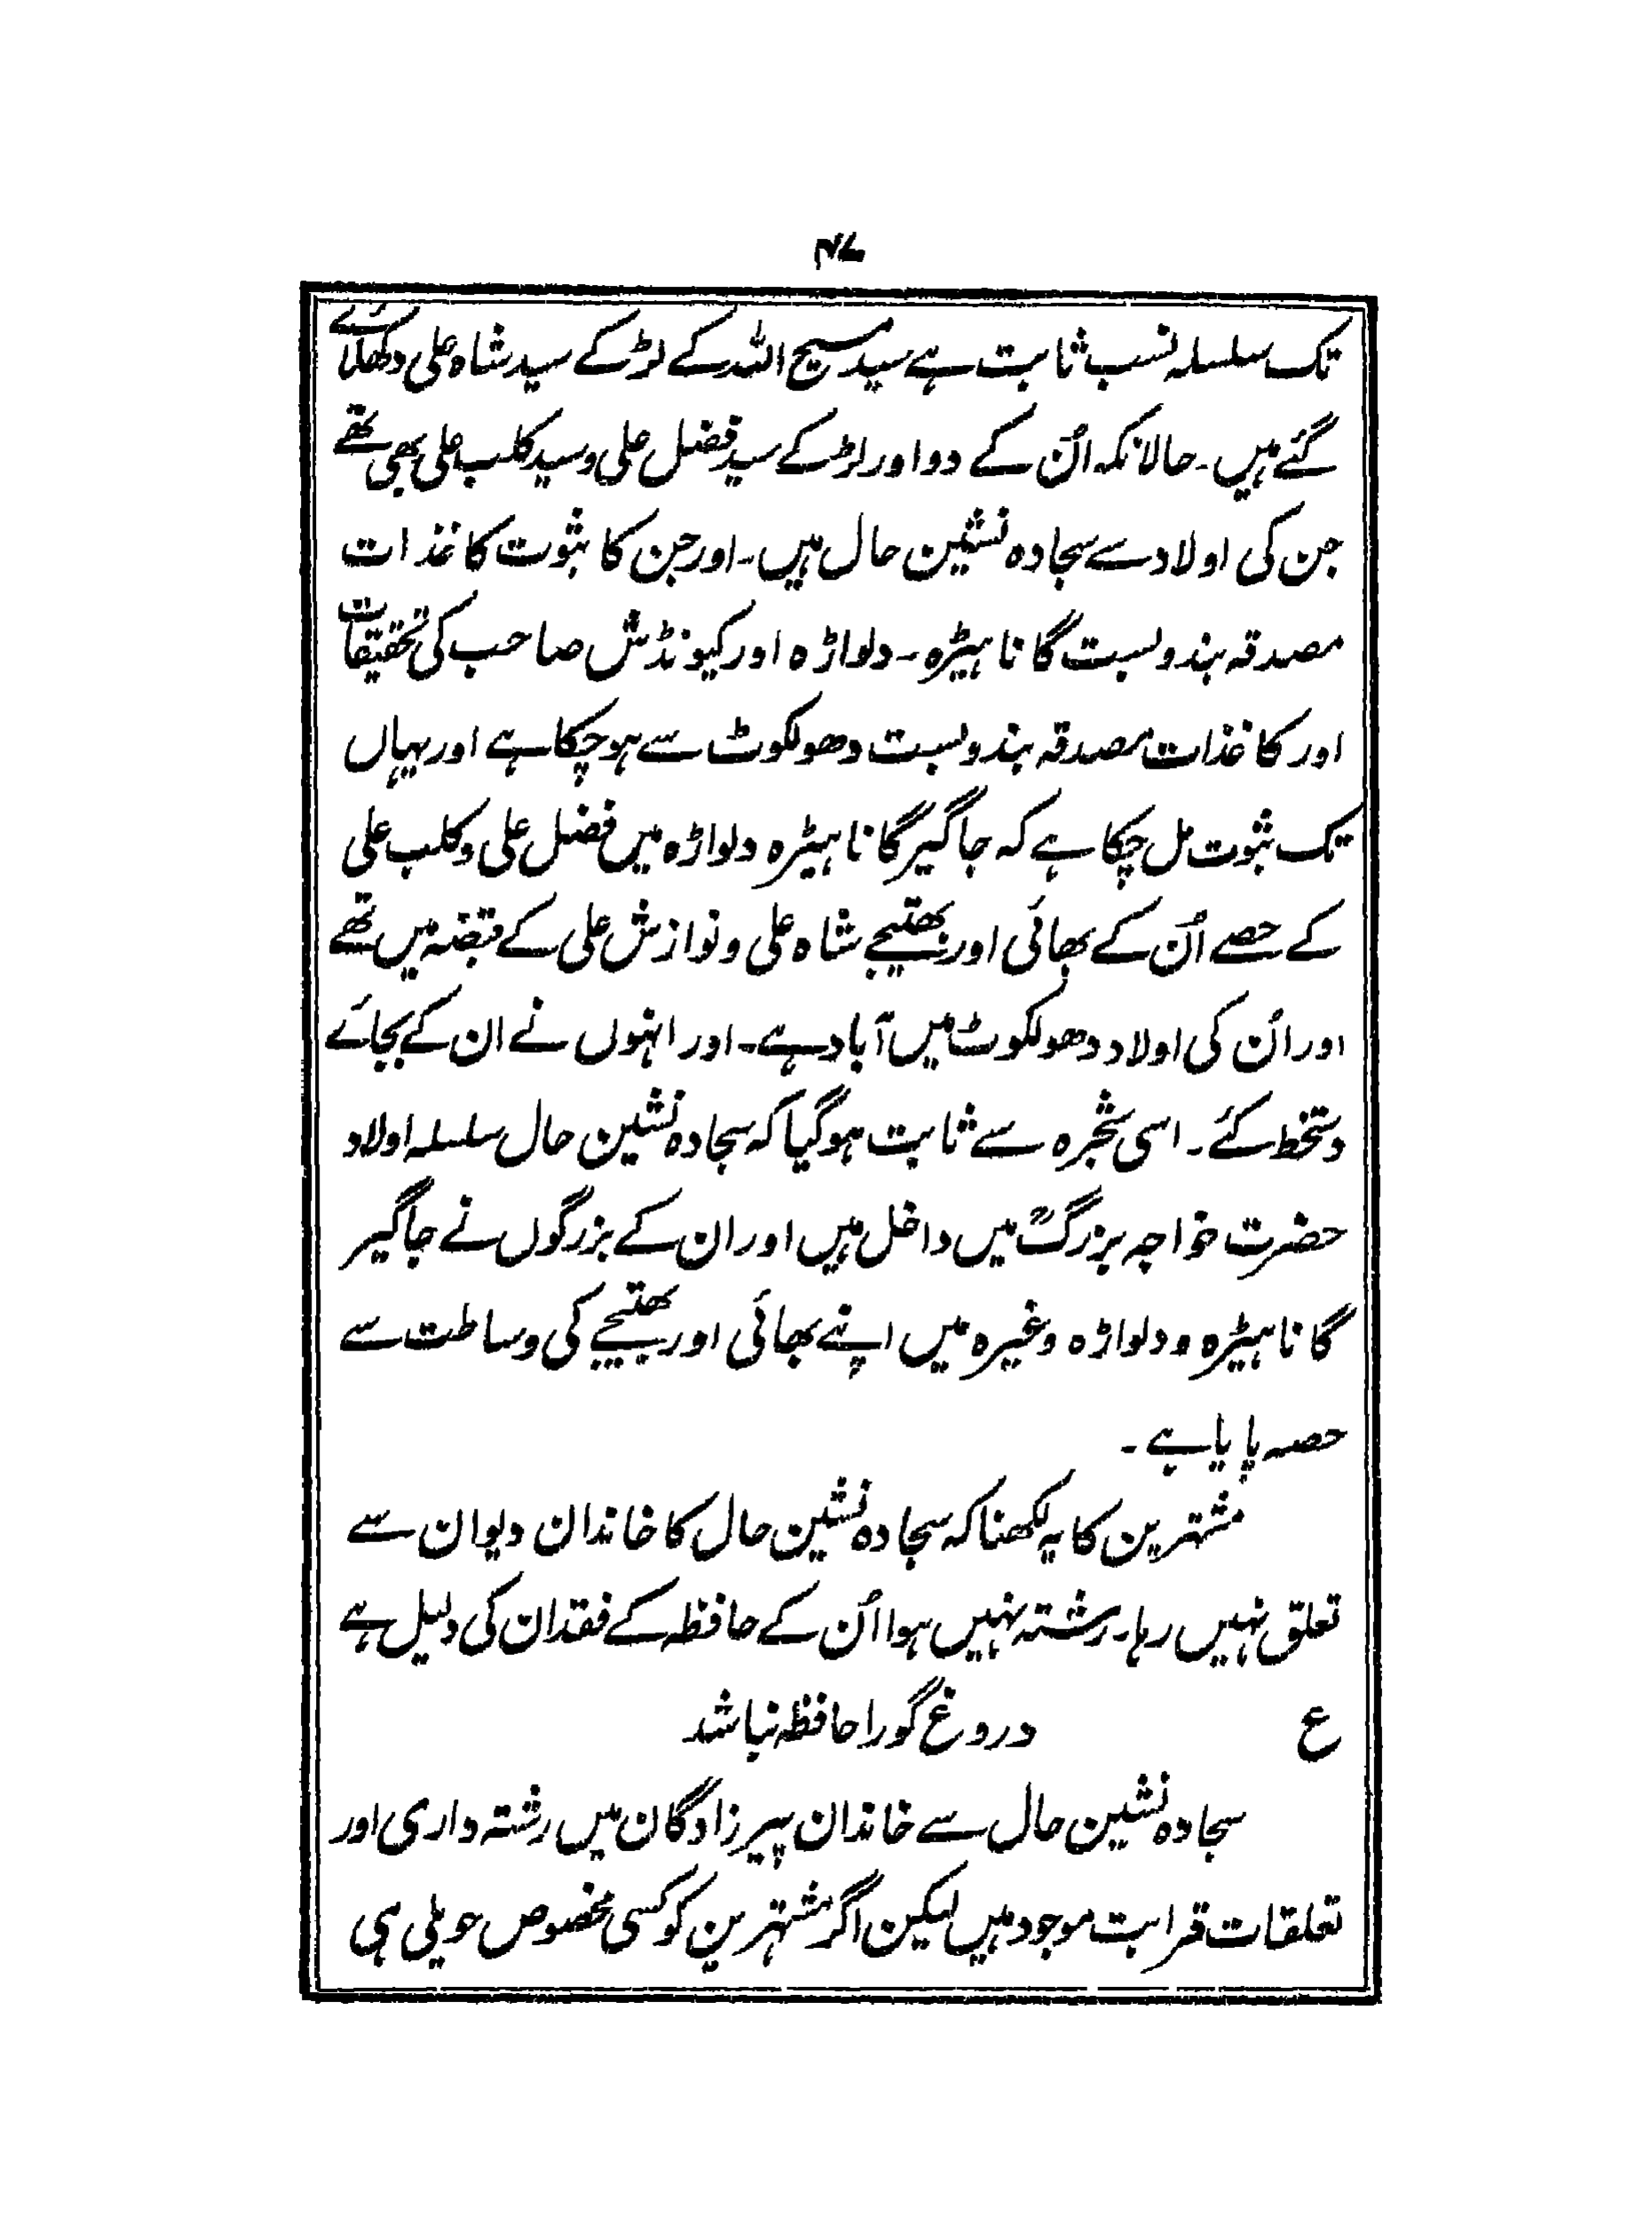 ۴۷
تک سلسلہ نسب ثابت ہے سید مسیح اللہ کے لڑکے سید شاہ علی دکھلائے
گئے ہیں۔ حالانکہ اُن کے دو اور لڑکے سید فضل علی و سید کلب علی بھی تھے
جن کی اولاد سے سجادہ نشین حال ہیں۔ اور جن کا ثبوت کاغذات
مصدقہ بندوبست گاناہیڑہ۔ دلواڑہ اور کیونڈش صاحب کی تحقیقات
اور کاغذات مصدقہ بندوبست دھولکوٹ سے ہوچکا ہے اور یہاں
تک ثبوت مل چکا ہے کہ جاگیر گاناہیڑہ دلواڑہ میں فضل علی و کلب علی
کے حصے اُن کے بھائی اور بھتیجے شاہ علی و نوازش علی کے قبضہ میں تھے
اور اُن کی اولاد دھولکوٹ میں آباد ہے۔ اور انہوں نے ان کے بجائے
دستخط کئے۔ اسی شجرہ سے ثابت ہوگیا کہ سجادہ نشین حال سلسلہ اولاد
حضرت خواجہ بزرگؒ میں داخل ہیں اور ان کے بزرگوں نے جاگیر
گاناہیڑہ و دلواڑہ وغیرہ میں اپنے بھائی اور بھتیجے کی وساطت سے
حصہ پایا ہے۔
مشتہرین کا یہ لکھنا کہ سجادہ نشین حال کا خاندان دیوان سے
تعلق نہیں رہا۔ رشتہ نہیں ہوا اُن کے حافظہ کے فقدان کی دلیل ہے
ع دروغ گورا حافظہ نباشد
سجادہ نشین حال سے خاندان پیرزادگان میں رشتہ داری اور
تعلقات قرابت موجود ہیں لیکن اگر مشتہرین کو کسی مخصوص حویلی ہی